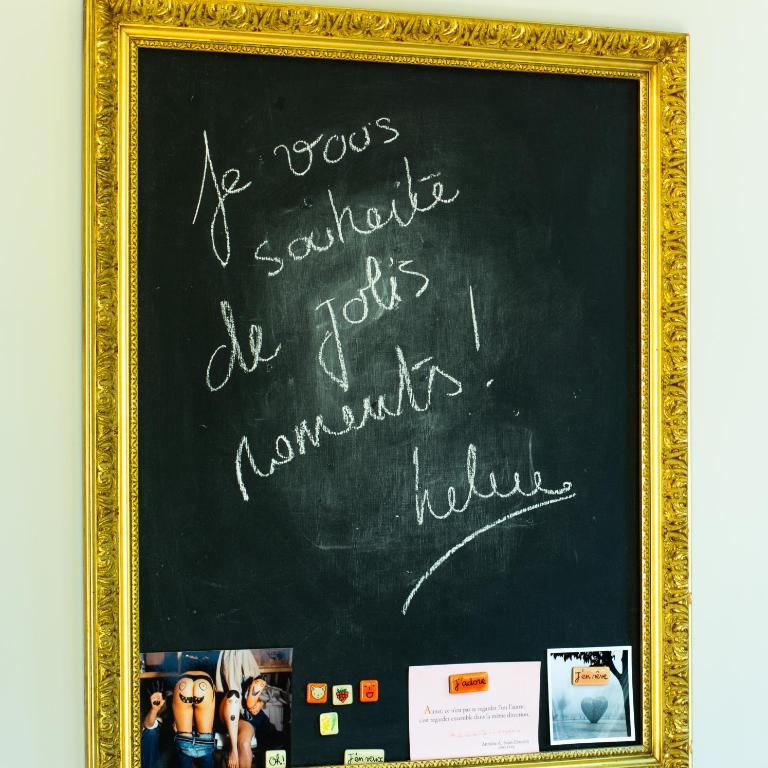 Je vous
souhaite
de jolis
moments !
helene
J'adore
J'en rêve
Aimer, ce n'est pas se regarder l'un l'autre,
c'est regarder ensemble dans la même direction.
Antoine de Saint-Exupéry
Oh!
J'en veux